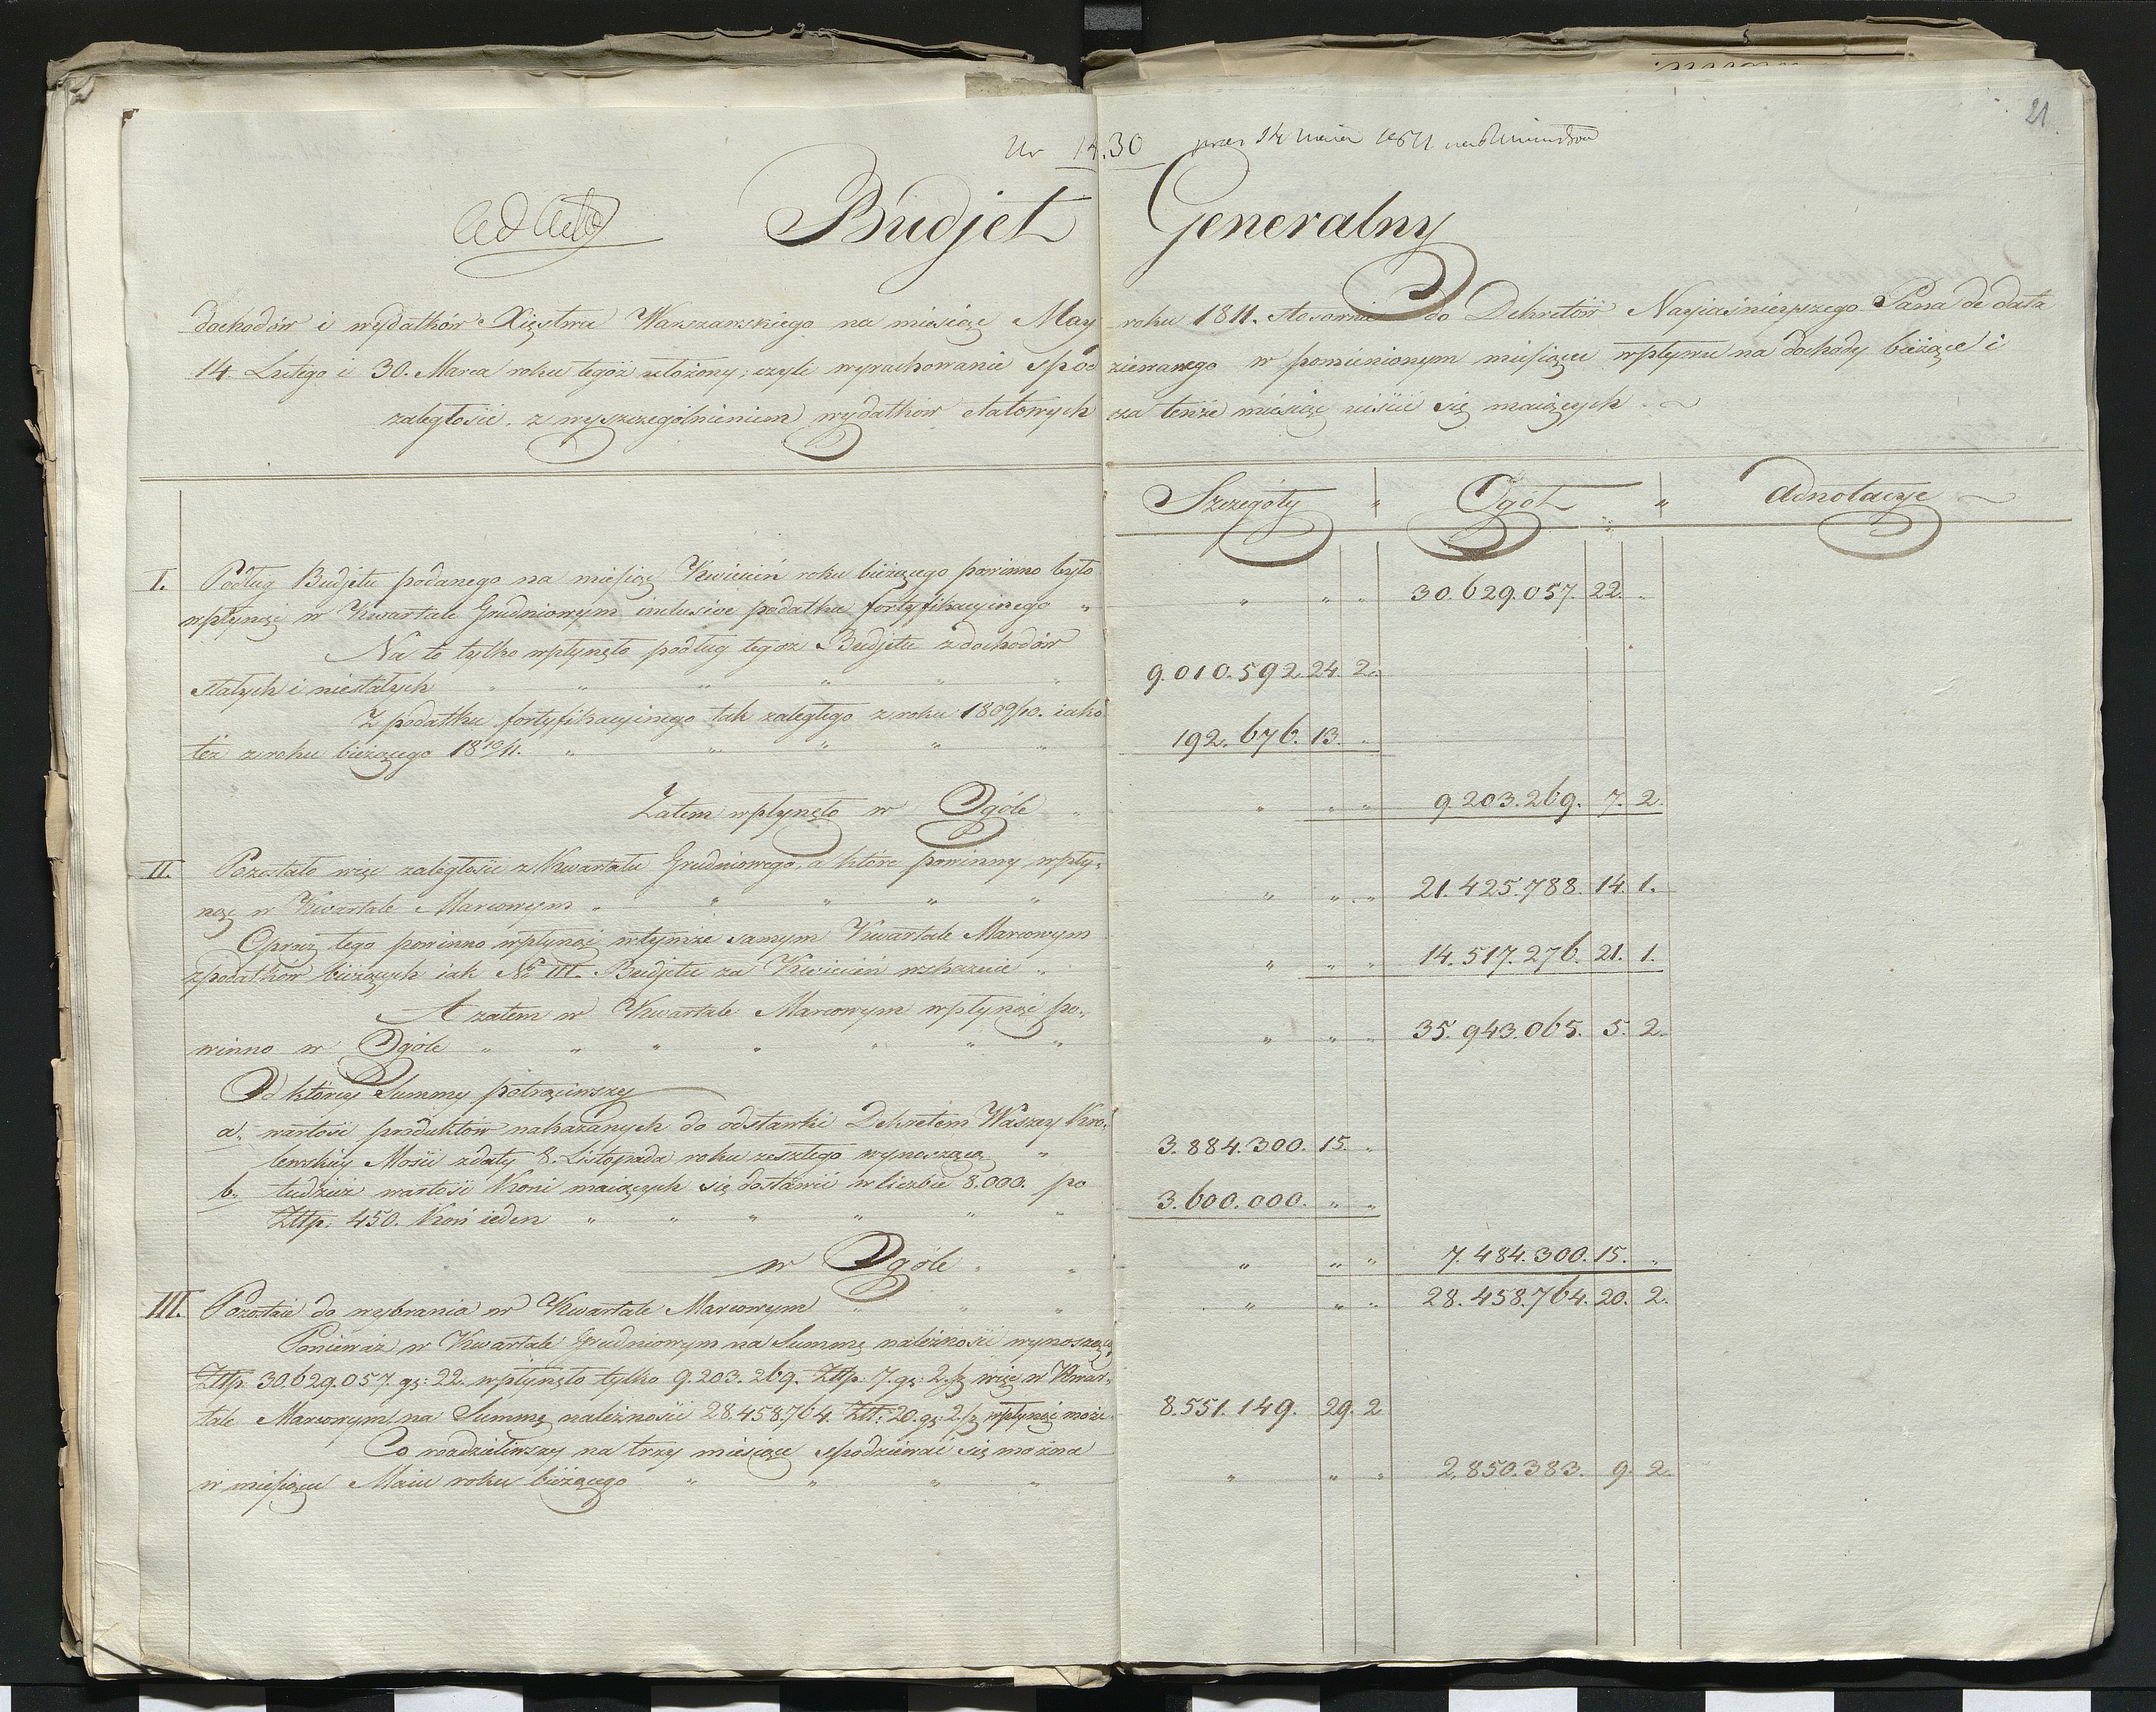 21.
Nr 14.30
ad acta
Budjet Generalny
dochodów i wydatków Xięstwa Warszawskiego na miesiąc May roku 1811. stosownie do Dekretów Nayiaśnieyszego Pana de data
14. Lutego i 30. Marca roku tegoż ułożony, czyli wyrachowanie spodziewanego w pomienionym miesiącu wpływu na dochody bieżące i
zaległości, z wyszczególnieniem wydatków etatowych za tenże miesiąc uiścić się maiących.
Szczegóły " Ogół " Adnotacye
I. Podług Budjetu podanego na miesiąc Kwiecień roku bieżącego powinno było
wpłynąć w Kwartale Grudniowym inclusive podatku fortyfikacyinego " " " " 30.629.057. 22. "
Na to tylko wpłynęło podług tegoż Budjetu z dochodów
stałych i niestałych " " " " " " 9.010.592. 24. 2.
Z podatku fortyfikacyinego tak zaległego z roku 1809/10. iako
też z roku bieżącego 1810/11. " " " " " 192.676. 13. "
Zatem wpłynęło w Ogóle " " " " 9.203.269. 7. 2.
II. Pozostało więc zaległości z Kwartału Grudniowego, a które powinny wpły-
nąć w Kwartale Marcowym " " " " " " " " 21.425.788. 14. 1.
Oprucz tego powinno wpłynąć w tymże samym Kwartale Marcowym
z podatków bieżących iak No III. Budjetu za Kwiecień wskazuie " " " " 14.517.276. 21. 1.
A zatem w Kwartale Marcowym wpłynąć po-
winno w Ogóle " " " " " " " " " " 35.943.065. 5. 2.
Od którey Summy potrąciwszy
a. wartość produktów nakazanych do odstawki Dekretem Waszey Kró-
lewskiey Mości z daty 8. Listopada roku zeszłego wynoszącą " 3.884.300. 15. "
b. tudzież wartość Koni maiących się dostawić w liczbie 8.000. po
Złłp. 450. Koń ieden " " " " " " 3.600.000. " "
w Ogóle " " " " " 7.484.300. 15. "
III. Pozostaie do wybrania w Kwartale Marcowym " " " " " " 28.458.764. 20. 2.
Ponieważ w Kwartale Grudniowym na Summę należności wynoszącą
Złłp. 30.629.057. gr: 22. wpłynęło tylko 9.203.269. Złłp. 7. gr: 2. sz więc w Kwar-
tale Marcowym na Summę należności 28.458.764. Złł: 20. gr: 2. sz wpłynąć może. 8.551.149. 29. 2
Co rozdzieliwszy na trzy miesiące spodziewać się można
w miesiącu Maiu roku bieżącego " " " " " " " 2.850.383. 9. 2.